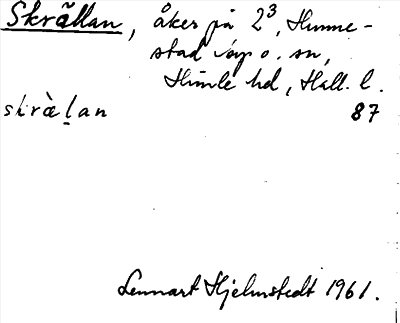 Skrällan, åker på 2³, Hunne-
stad by o. sn,
Himle hd, Hall. l.
skràḷan 87
Lennart Hjelmstedt 1961.